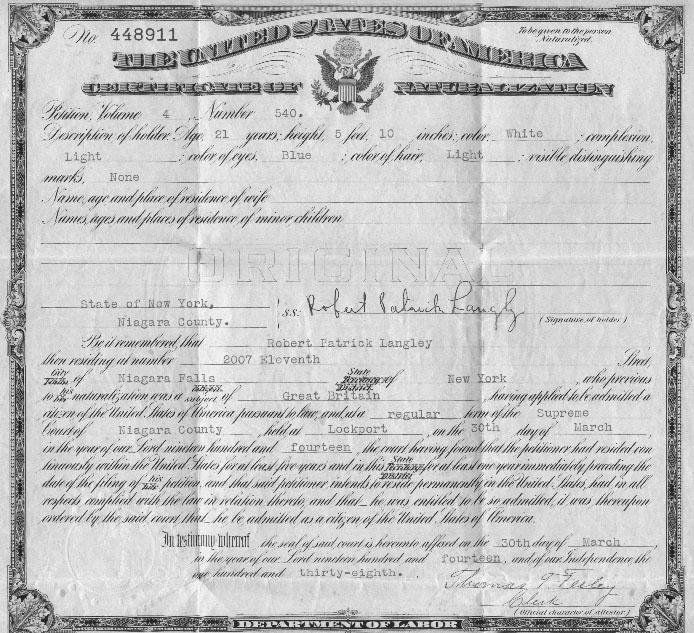 No. 448911
To be given to the person Naturalized.
THE UNITED STATES OF AMERICA
CERTIFICATE OF NATURALIZATION
Petition, Volume 4 , Number 540.
Description of holder: Age, 21 years; height, 5 feet, 10 inches; color, White ; complexion,
Light ; color of eyes, Blue ; color of hair, Light ; visible distinguishing
marks, None
Name, age and place of residence of wife
Names, ages and places of residence of minor children
ORIGINAL
State of New York,
Niagara County. } s.s: Robert Patrick Langly
(Signature of holder)
Be it remembered, that Robert Patrick Langley
then residing at number 2007 Eleventh Street,
City Town of Niagara Falls State Territory District of New York , who previous
to his her naturalization was a subject of Great Britain , having applied to be admitted a
citizen of the United States of America pursuant to law, and, at a regular term of the Supreme
Court of Niagara County held at Lockport , on the 30th day of March ,
in the year of our Lord nineteen hundred and fourteen , the court having found that the petitioner had resided con
tinuously within the United States for at least five years and in this State Territory District for at least one year immediately preceding the
date of the filing of his petition, and that said petitioner intends to reside permanently in the United States, had in all
respects complied with the law in relation thereto, and that he was entitled to be so admitted, it was thereupon
ordered by the said court that he be admitted as a citizen of the United States of America.
In testimony whereof the seal of said court is hereunto affixed on the 30th day of March
in the year of our Lord nineteen hundred and fourteen , and of our Independence the
one hundred and thirty-eighth.
Thomas T. Feeley
Clerk
(Official character of attester.)
DEPARTMENT OF LABOR